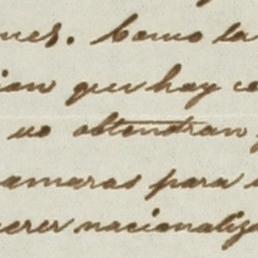 nes. Como la
ion que hay co
no obtendran
amaras para
erer nacionaliz